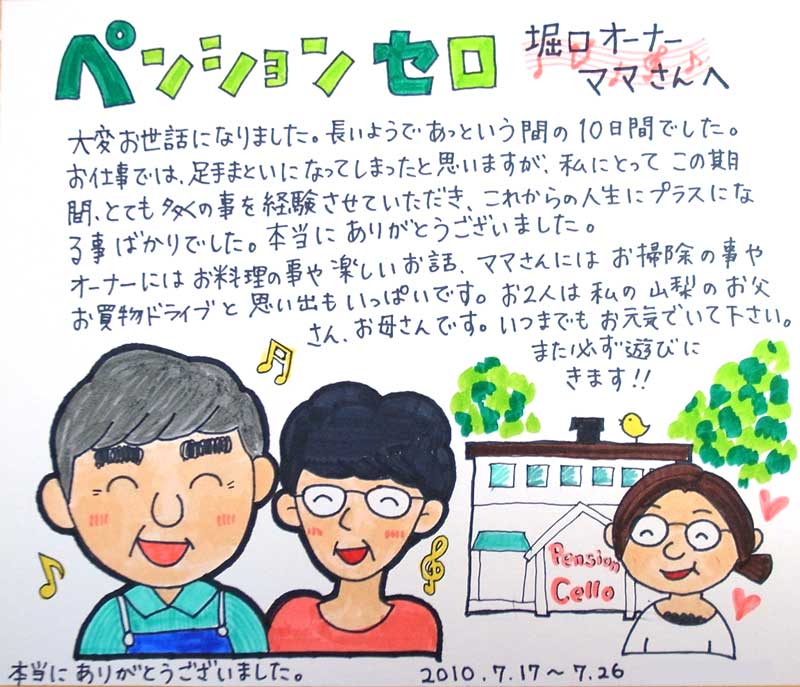 ペンションセロ
堀口オーナー
ママさんへ
大変お世話になりました。長いようであっという間の10日間でした。
お仕事では、足手まといになってしまったと思いますが、私にとってこの期
間、とても多くの事を経験させていただき、これからの人生にプラスにな
る事ばかりでした。本当にありがとうございました。
オーナーにはお料理の事や楽しいお話、ママさんにはお掃除の事や
お買物ドライブと思い出もいっぱいです。お2人は私の山梨のお父
さん、お母さんです。いつまでもお元気でいて下さい。
また必ず遊びに
きます!!
Pension
Cello
本当にありがとうございました。
2010.7.17〜7.26